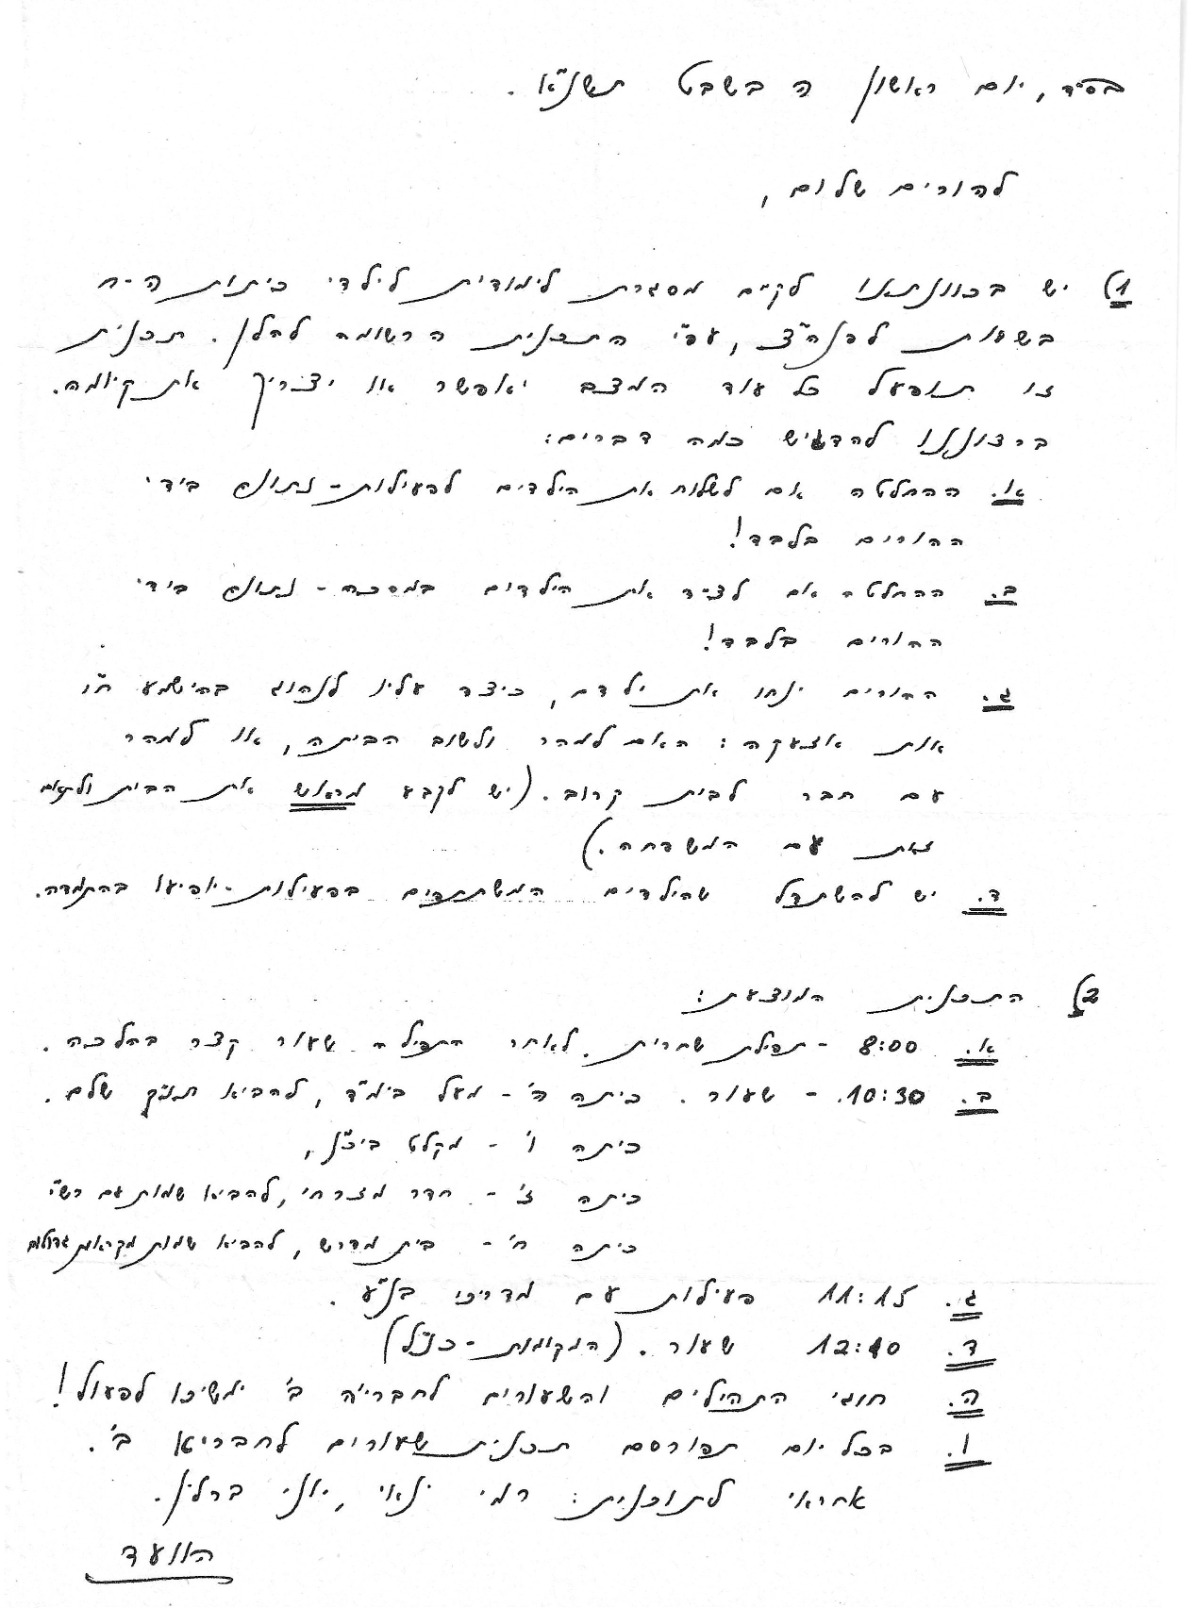 בס״ד, יום ראשון ה בשבט תשנ״א.
להורים שלום,
1) יש בכוונתנו לקיים מסגרת לימודית לילדי כיתות ה-ח
בשעות לפנה״צ, עפ״י התכנית הרשומה להלן. תכנית
זו תופעל כל עוד המצב יאפשר או יצריך את קיומה.
ברצוננו להדגיש כמה דברים:
א. ההחלטה אם לשלוח את הילדים לפעילות - נתונה בידי
ההורים בלבד!
ב. ההחלטה אם לצייד את הילדים במסכה - נתונה בידי
ההורים בלבד!
ג. ההורים ינחו את ילדם, כיצד עליו לנהוג בהישמע ח״ו
אות אזעקה: האם למהר ולשוב הביתה, או למהר
עם חבר לבית קרוב. (יש לקבע מראש את הבית ולתאם
זאת עם המשפחה.)
ד. יש להשתדל שהילדים המשתתפים בפעילות - יופיעו בהתמדה.
2) התכנית המוצעת:
א. 8:00 - תפילת שחרית. לאחר התפילה שעור קצר בהלכה.
ב. 10:30. - שעור. כיתה ה' - מעל בימ״ד, להביא תנ״ך שלם.
כיתה ו' - מקלט ביכ״נ,
כיתה ז' - חדר מזרחי, להביא שמות עם רש״י
כיתה ח' - בית מדרש, להביא שמות מקראות גדולות
ג. 11:15 פעילות עם מדריכי בנ״ע.
ד. 12:10 שעור. (המקומות - כנ״ל)
ה. חוגי התהילים והשעורים לחבריה ב' ימשיכו לפעול!
ו. בכל יום תפורסם תכנית שעורים לחבריא ב'.
אחראי לתוכנית: רמי ינאי, יוני ברלין.
הוועד